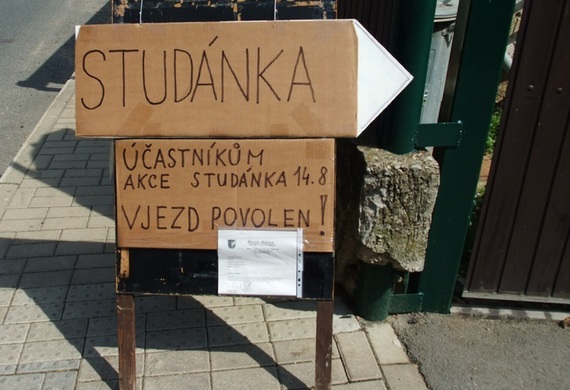 STUDÁNKA
ÚČASTNÍKŮM
AKCE STUDÁNKA 14.8
VJEZD POVOLEN!